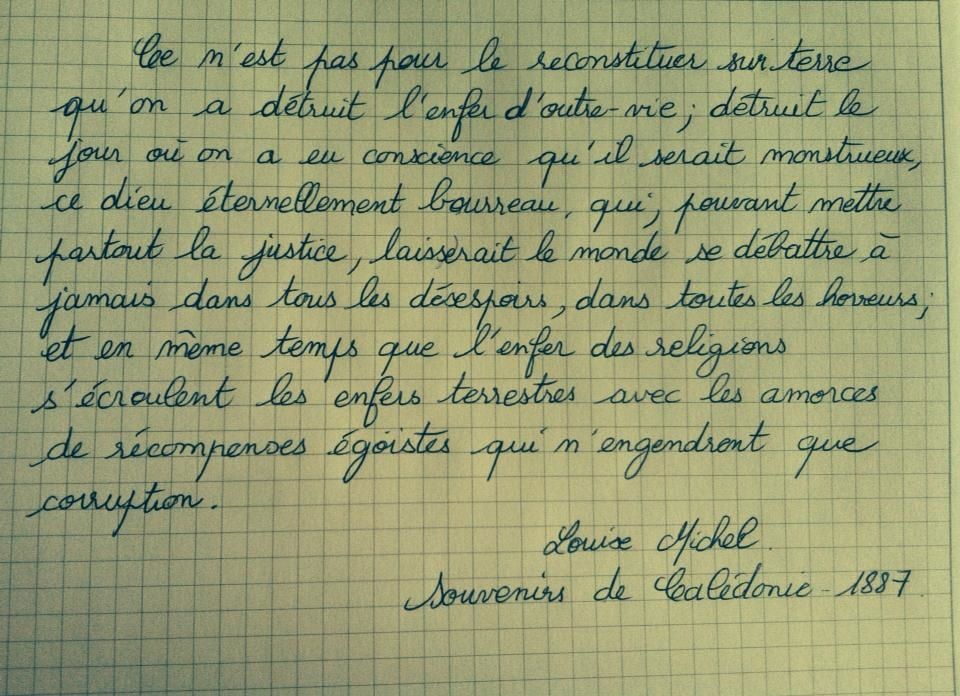 Ce n'est pas pour le reconstituer sur terre
qu'on a détruit l'enfer d'outre-vie ; détruit le
jour où on a eu conscience qu'il serait monstrueux,
ce dieu éternellement bourreau, qui, pouvant mettre
partout la justice, laisserait le monde se débattre à
jamais dans tous les désespoirs, dans toutes les horreurs ;
et en même temps que l'enfer des religions
s'écroulent les enfers terrestres avec les amorces
de récompenses égoïstes qui n'engendrent que
corruption.
Louise Michel.
Souvenirs de Calédonie - 1887.